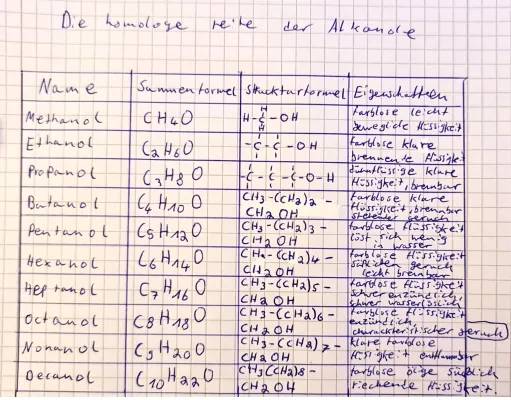 Die homologe reihe der Alkanole
Name Summenformel Strukturformel Eigenschaften
Methanol CH4O H-C-OH farblose leicht
H H bewegliche Flüssigkeit
Ethanol C2H6O -C-C-OH farblose klare
brennente Flüssigkeit
Propanol C3H8O -C-C-C-O-H dünnflüssige klare
Flüssigkeit, brennbar
Butanol C4H10O CH3-(CH2)2- farblose klare
CH2OH Flüssigkeit, brennbar
geruch
Pentanol C5H12O CH3-(CH2)3- farblose flüssigkeit
CH2OH löst sich wenig
in wasser
Hexanol C6H14O CH3-(CH2)4- farblose flüssigkeit
CH2OH süßlichen geruch
leicht brennbar
Heptanol C7H16O CH3-(CH2)5- farblose flüssigkeit
CH2OH schwer enzündlich,
schwer wasserlöslich
Octanol C8H18O CH3-(CH2)6- farblose flüssigkeit
CH2OH enzündlich
charakteristischer geruch
Nonanol C9H20O CH3-(CH2)7- klare farblose
CH2OH flüssigkeit entflammbar
Decanol C10H22O CH3(CH2)8- farblose ölige süßlich
CH2OH riechende flüssigkeit.